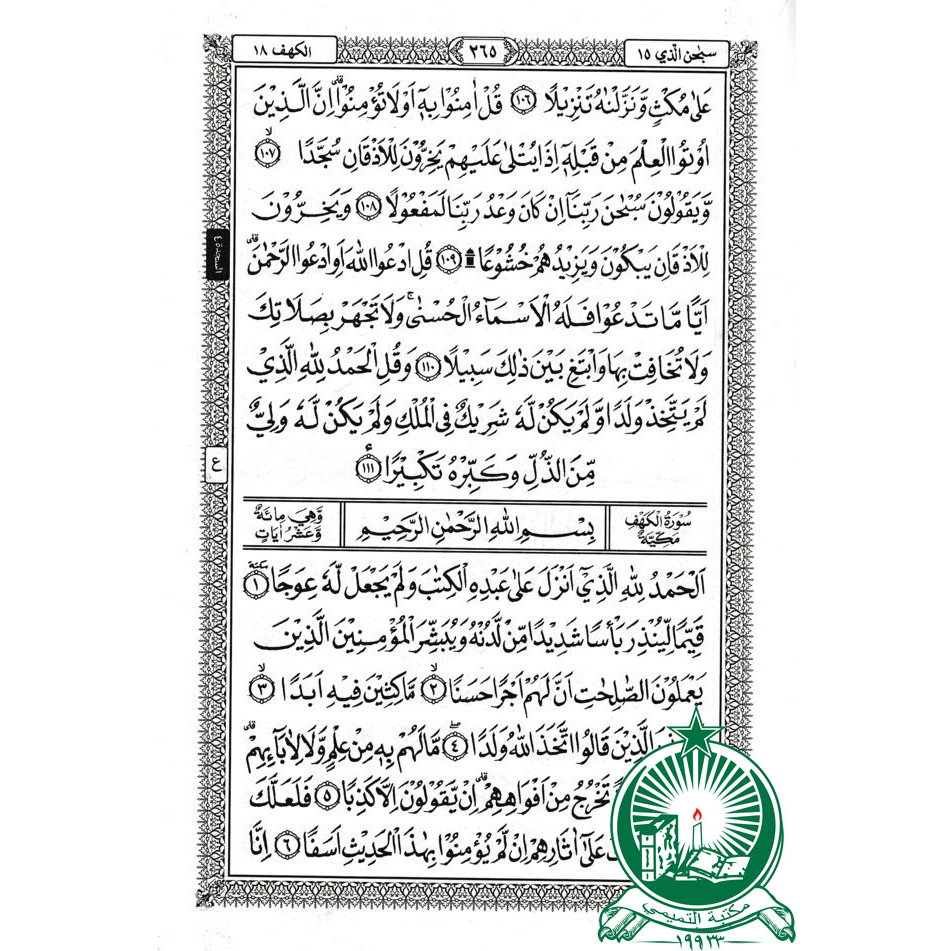 سبحن الذي ١٥
٢٦٥
الكهف ١٨
عَلٰى مُكْثٍ وَّنَزَّلْنٰهُ تَنْزِيْلًا ﴿١٠٦﴾ قُلْ اٰمِنُوْا بِهٖٓ اَوْ لَا تُؤْمِنُوْا ۗ اِنَّ الَّذِيْنَ
اُوْتُوا الْعِلْمَ مِنْ قَبْلِهٖٓ اِذَا يُتْلٰى عَلَيْهِمْ يَخِرُّوْنَ لِلْاَذْقَانِ سُجَّدًا ﴿١٠٧﴾
وَّيَقُوْلُوْنَ سُبْحٰنَ رَبِّنَآ اِنْ كَانَ وَعْدُ رَبِّنَا لَمَفْعُوْلًا ﴿١٠٨﴾ وَيَخِرُّوْنَ
لِلْاَذْقَانِ يَبْكُوْنَ وَيَزِيْدُهُمْ خُشُوْعًا ۩ ﴿١٠٩﴾ قُلِ ادْعُوا اللّٰهَ اَوِ ادْعُوا الرَّحْمٰنَ ۗ
السجدة ٤
اَيًّا مَّا تَدْعُوْا فَلَهُ الْاَسْمَآءُ الْحُسْنٰى ۚ وَلَا تَجْهَرْ بِصَلَاتِكَ
وَلَا تُخَافِتْ بِهَا وَابْتَغِ بَيْنَ ذٰلِكَ سَبِيْلًا ﴿١١٠﴾ وَقُلِ الْحَمْدُ لِلّٰهِ الَّذِيْ
لَمْ يَتَّخِذْ وَلَدًا وَّلَمْ يَكُنْ لَّهٗ شَرِيْكٌ فِى الْمُلْكِ وَلَمْ يَكُنْ لَّهٗ وَلِيٌّ
مِّنَ الذُّلِّ وَكَبِّرْهُ تَكْبِيْرًا ﴿١١١﴾
ع
سُوْرَةُ الْكَهْفِ مَكِّيَّةٌ
بِسْمِ اللّٰهِ الرَّحْمٰنِ الرَّحِيْمِ
وَّهِيَ مِائَةٌ وَّعَشْرُ اٰيَاتٍ
اَلْحَمْدُ لِلّٰهِ الَّذِيْٓ اَنْزَلَ عَلٰى عَبْدِهِ الْكِتٰبَ وَلَمْ يَجْعَلْ لَّهٗ عِوَجًا ﴿١﴾
قَيِّمًا لِّيُنْذِرَ بَأْسًا شَدِيْدًا مِّنْ لَّدُنْهُ وَيُبَشِّرَ الْمُؤْمِنِيْنَ الَّذِيْنَ
يَعْمَلُوْنَ الصّٰلِحٰتِ اَنَّ لَهُمْ اَجْرًا حَسَنًا ﴿٢﴾ مَّاكِثِيْنَ فِيْهِ اَبَدًا ﴿٣﴾
الَّذِيْنَ قَالُوا اتَّخَذَ اللّٰهُ وَلَدًا ﴿٤﴾ مَّا لَهُمْ بِهٖ مِنْ عِلْمٍ وَّلَا لِاٰبَآئِهِمْ ۗ
تَخْرُجُ مِنْ اَفْوَاهِهِمْ ۗ اِنْ يَّقُوْلُوْنَ اِلَّا كَذِبًا ﴿٥﴾ فَلَعَلَّكَ
عَلٰٓى اٰثَارِهِمْ اِنْ لَّمْ يُؤْمِنُوْا بِهٰذَا الْحَدِيْثِ اَسَفًا ﴿٦﴾ اِنَّا
مكتبة التميمي
١٩٩٣٣